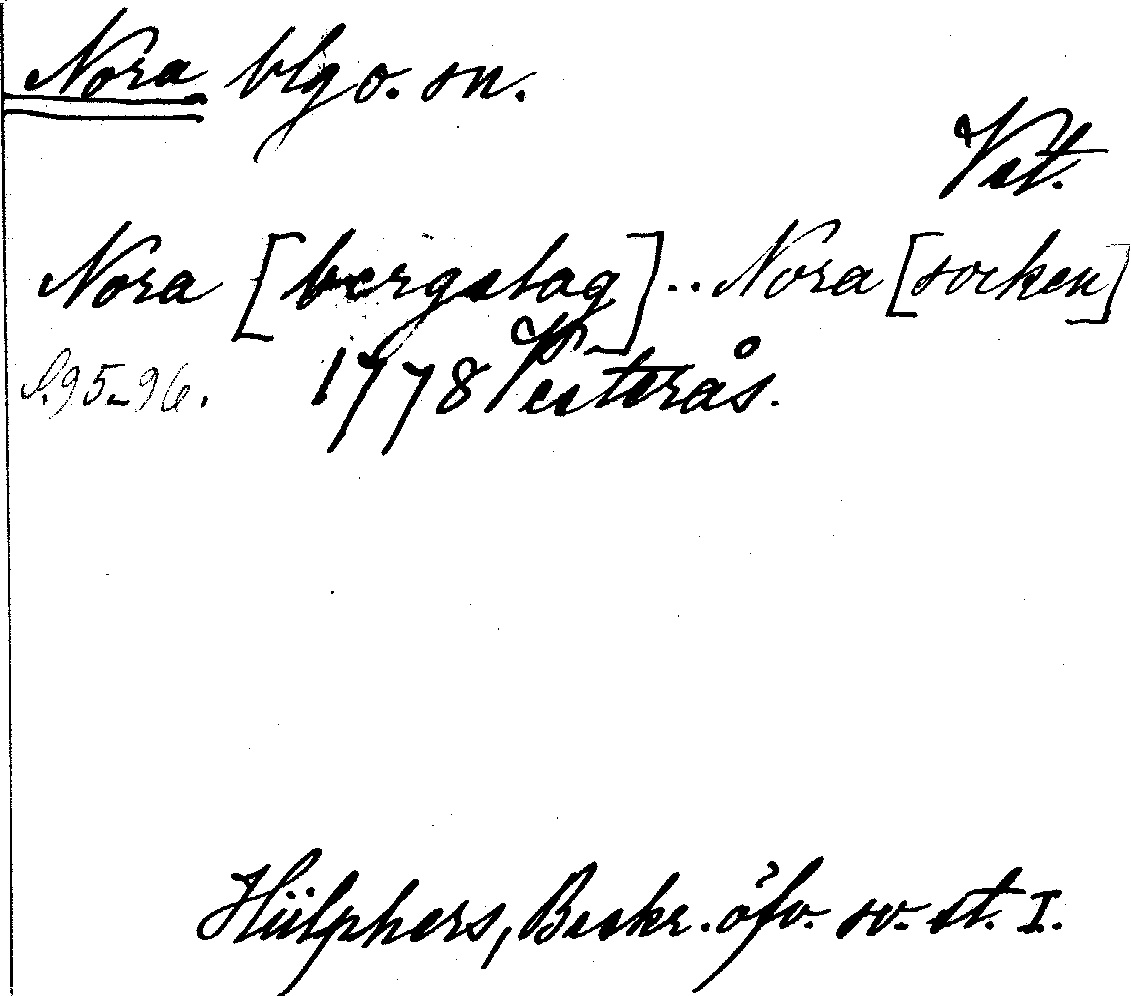 Nora blg o. sn.
Vst.
Nora [bergslag] .. Nora [socken]
S. 95-96. 1778 Vesterås.
Hülphers, Beskr. öfv. sv. st. I.